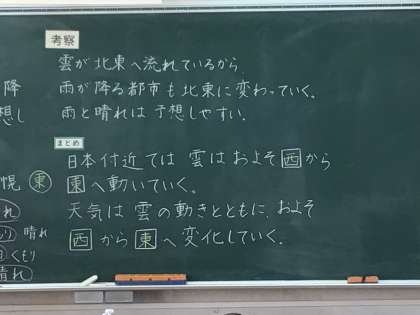 考察
雲が北東へ流れているから
雨が降る都市も北東に変わっていく。
雨と晴れは予想しやすい。
まとめ
日本付近では 雲は およそ 西 から
東 へ動いていく。
天気は 雲の動きとともに、およそ
西 から 東 へ 変化していく。
降
想し
幌 東
れ
り 晴れ
くもり
晴れ